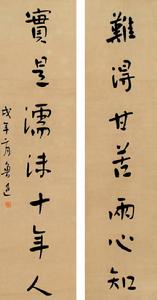 難得甘苦兩心知
實是濡沫十年人
戌年 月魯迅